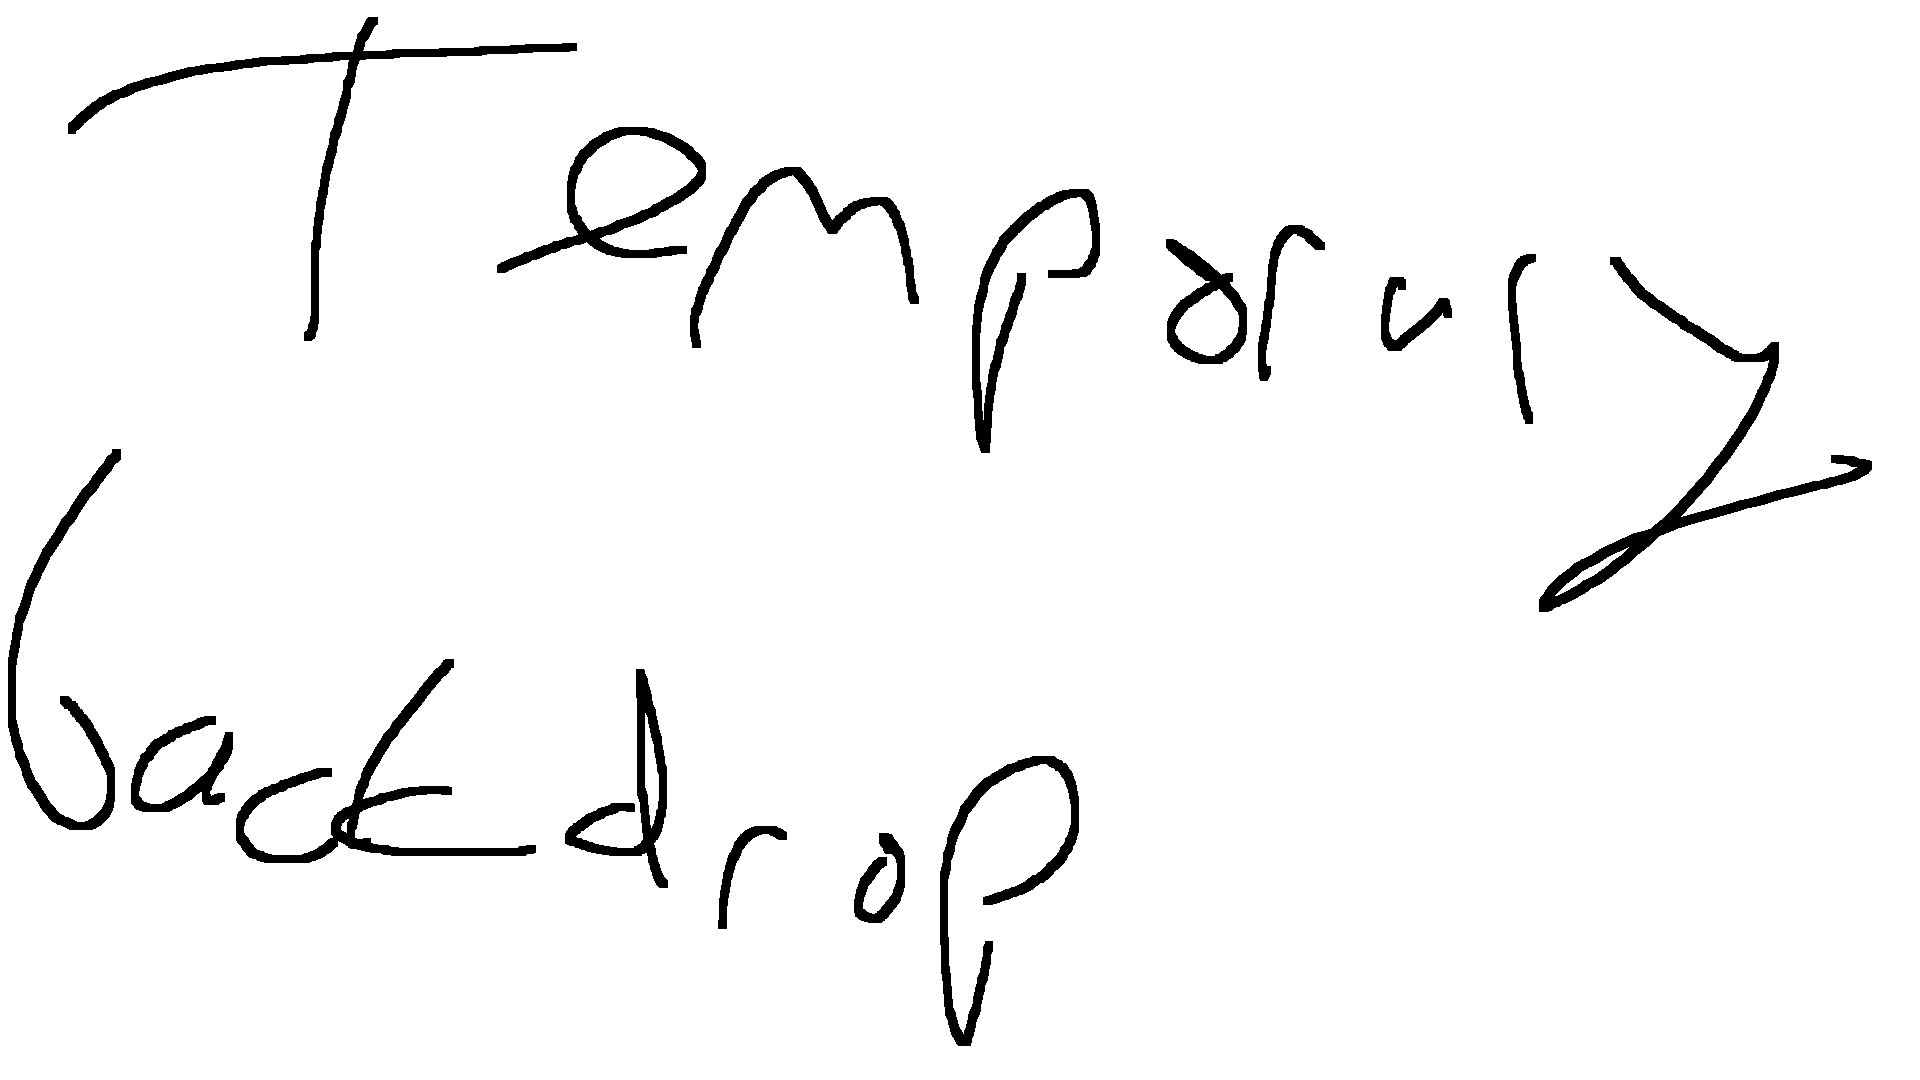 Temporary
backdrop